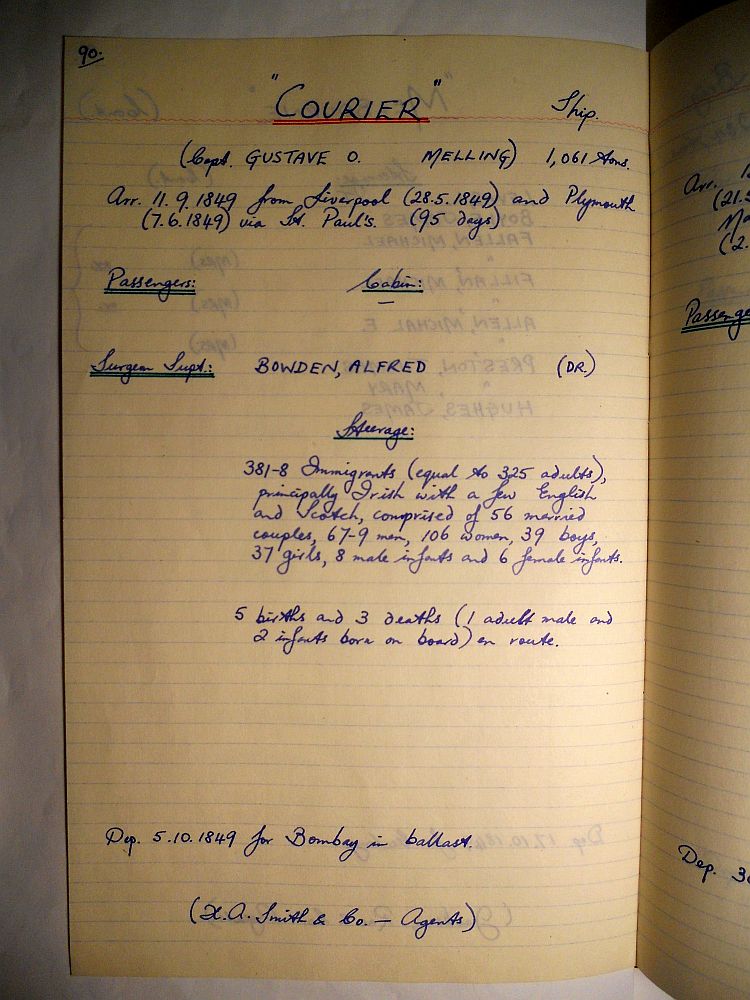 90.
"COURIER" Ship.
(Capt. GUSTAVE O. MELLING) 1,061 tons.
Arr. 11.9.1849 from Liverpool (28.5.1849) and Plymouth
(7.6.1849) via St. Paul's. (95 days)
Passengers: Cabin:
Surgeon Supt.: BOWDEN, ALFRED (DR.)
Steerage:
381-8 Immigrants (equal to 325 adults),
principally Irish with a few English
and Scotch, comprised of 56 married
couples, 67-9 men, 106 women, 39 boys,
37 girls, 8 male infants and 6 female infants.
5 births and 3 deaths (1 adult male and
2 infants born on board) en route.
Dep. 5.10.1849 for Bombay in ballast.
(H.A. Smith & Co. — Agents)
Arr.
(21.5
(2.
Passenge
Dep. 30